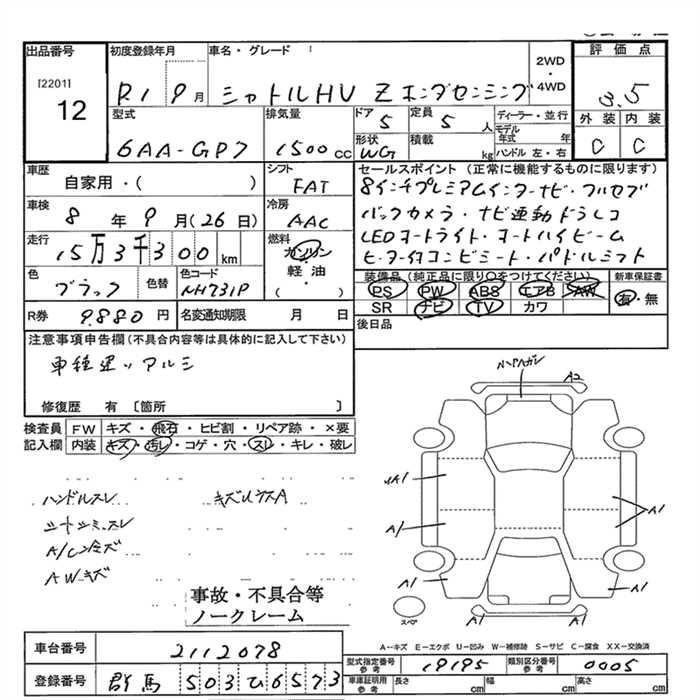 出品番号
[2201]
12
初度登録年月
R.1 9月
車名・グレード
シャトルHV Z ホンダセンシング
2WD
・
4WD
評価点
3.5
外装 内装
C C
型式
6AA-GP7
排気量
1500 cc
ドア
5
定員
5 人
形状
WG
積載
kg
ディーラー・並行
モデル年式 年
ハンドル 左・右
車歴
自家用・( )
シフト
FAT
車検
8年9月(26日)
冷房
AAC
走行
15万3千300km
燃料
ガソリン
軽油
( )
色
ブラック
色替
色コード
NH731P
R券
9.880円
名変通知期限 月 日
セールスポイント (正常に機能するものに限ります)
8インチプレミアムインターナビ・フルセグ
バックカメラ・ナビ連動ドラレコ
LEDオートライト・オートハイビーム
ヒーター付コンビミート・パドルシフト
装備品(純正品に限り〇をつけてください)
PS PW ABS エアB AW
SR ナビ TV カワ
新車保証書
有・無
後日品
注意事項申告欄(不具合内容等は具体的に記入して下さい)
車種違いアルミ
修復歴 有 〔箇所 〕
検査員記入欄
FW キズ・飛石・ヒビ割・リペア跡・×要
内装 キズ・汚レ・コゲ・穴・スレ・キレ・破レ
ハンドルスレ
シートシミ、スレ
A/Cキズ
AWキズ
キズUウスA
事故・不具合等
ノークレーム
リアハガシ
A2
A1
A1
A1
A1
A1
A1
A1
スペア
A-キズ E-エクボ U-凹み W-補修跡 S-サビ C-腐食 XX-交換済
車台番号
2112078
登録番号
群馬 503ひ6573
型式指定番号 参考
19195
類別区分番号 参考
0005
車庫証明用 参考
長さ cm
幅 cm
高さ cm